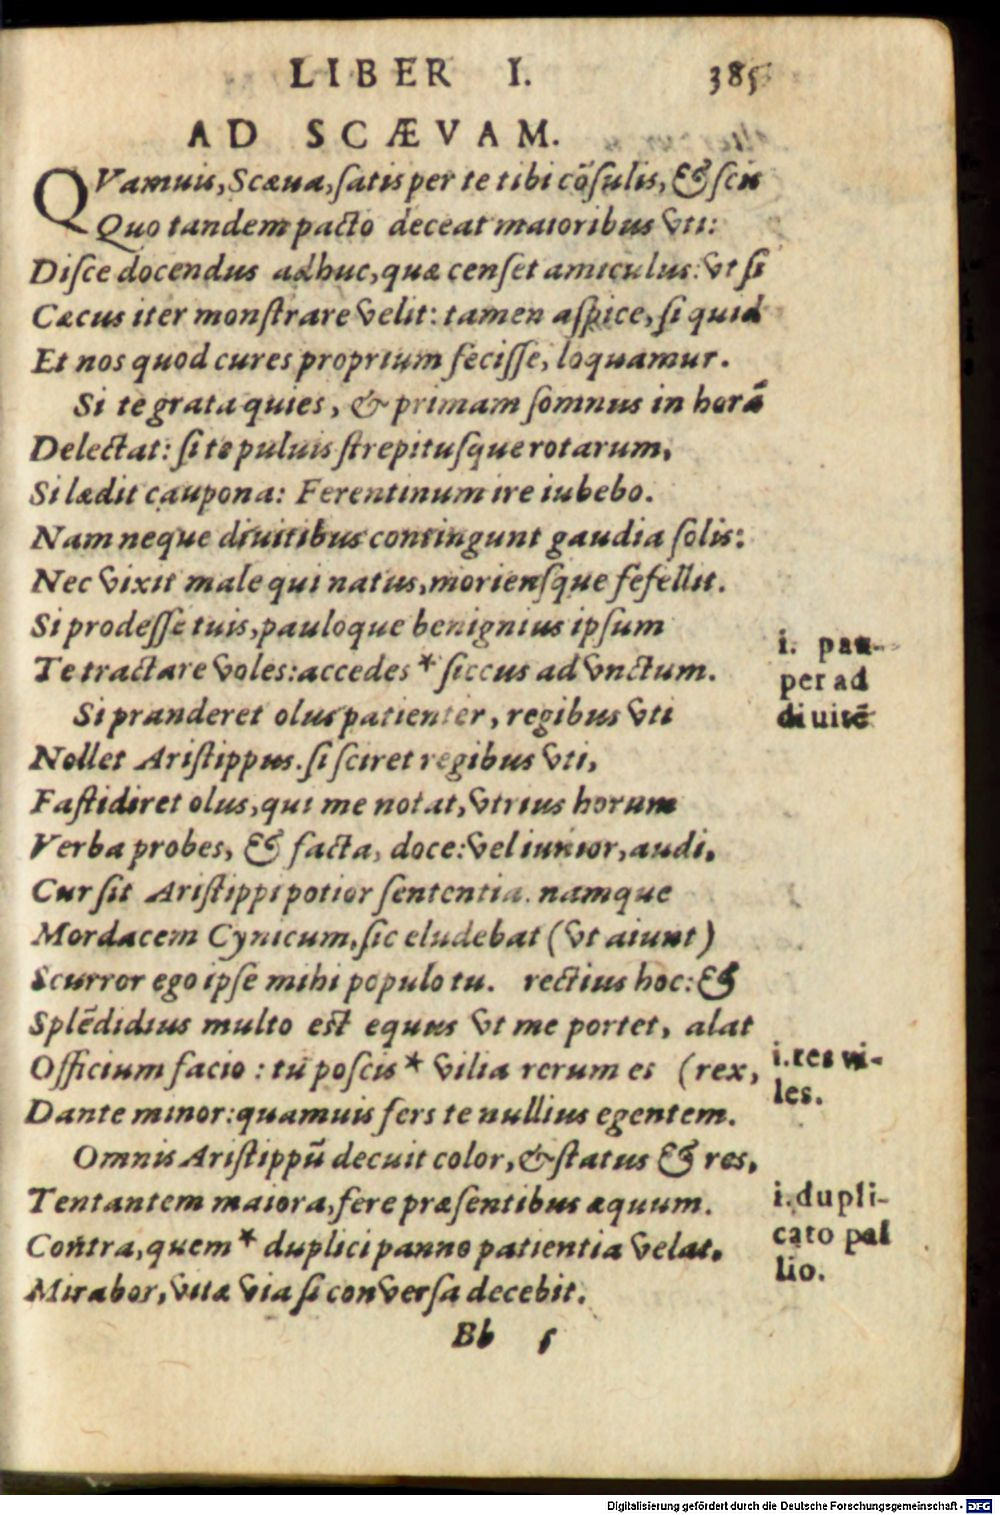 LIBER I. 385
AD SCÆVAM.
QVamuis, Scæua, satis per te tibi cõsulis, & scis
Quo tandem pacto deceat maioribus vti:
Disce docendus adhuc, quæ censet amiculus: vt si
Cæcus iter monstrare velit: tamen aspice, si quid
Et nos quod cures proprium fecisse, loquamur.
Si te grata quies, & primam somnus in horã
Delectat: si te puluis strepitusque rotarum,
Si lædit caupona: Ferentinum ire iubebo.
Nam neque diuitibus contingunt gaudia solis:
Nec vixit male qui natus, moriensque fefellit.
Si prodesse tuis, pauloque benignius ipsum
Te tractare voles: accedes * siccus ad vnctum.
i. pau-
per ad
diuitẽ
Si pranderet olus patienter, regibus vti
Nollet Aristippus. si sciret regibus vti,
Fastidiret olus, qui me notat, vtrius horum
Verba probes, & facta, doce: vel iunior, audi,
Cur sit Aristippi potior sententia. namque
Mordacem Cynicum, sic eludebat (vt aiunt)
Scurror ego ipse mihi populo tu. rectius hoc: &
Splẽdidius multo est equus vt me portet, alat
Officium facio: tu poscis * vilia rerum es (rex,
i. res vi-
les.
Dante minor: quamuis fers te nullius egentem.
Omnis Aristippũ decuit color, & status & res,
Tentantem maiora, fere præsentibus æquum.
Contra, quem * duplici panno patientia velat,
i. dupli-
cato pal
lio.
Mirabor, vitæ via si conversa decebit.
Bb 5
Digitalisierung gefördert durch die Deutsche Forschungsgemeinschaft - DFG